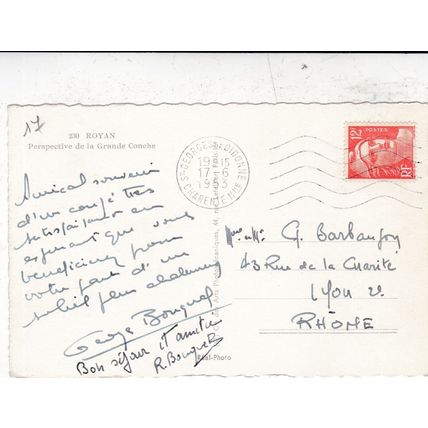 17
230 ROYAN
Perspective de la Grande Conche
Amical souvenir
d'un congé très
satisfaisant en
espérant que vous
bénéficierez pour
votre part d'un
soleil plus
George Bouquet
Bon séjour et amitiés
R. Bouquet
Réal-Photo
ST GEORGES-DE-DIDONNE
19 15
17-6
19
CHARENTE MME
12F
POSTES
RF
Mme et Mr G. Barbanson
43 Rue de la Charité
LYON 2e
RHÔNE